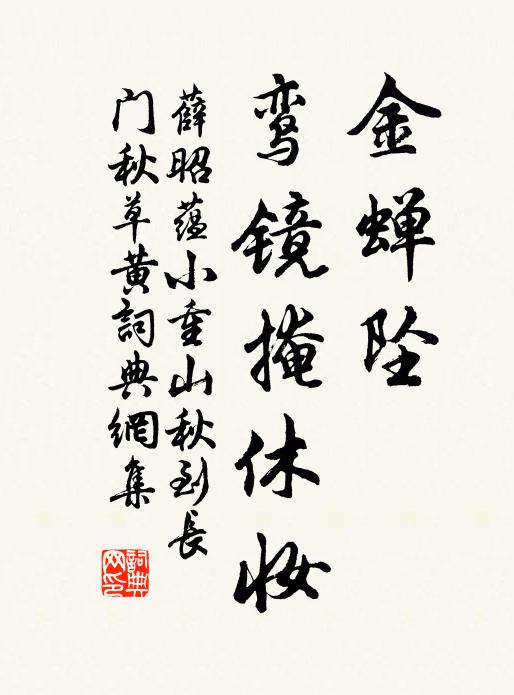 金蝉坠
鸾镜掩休妆
薛昭蕴小重山秋到长
门秋草黄詞典網集
詞典网印